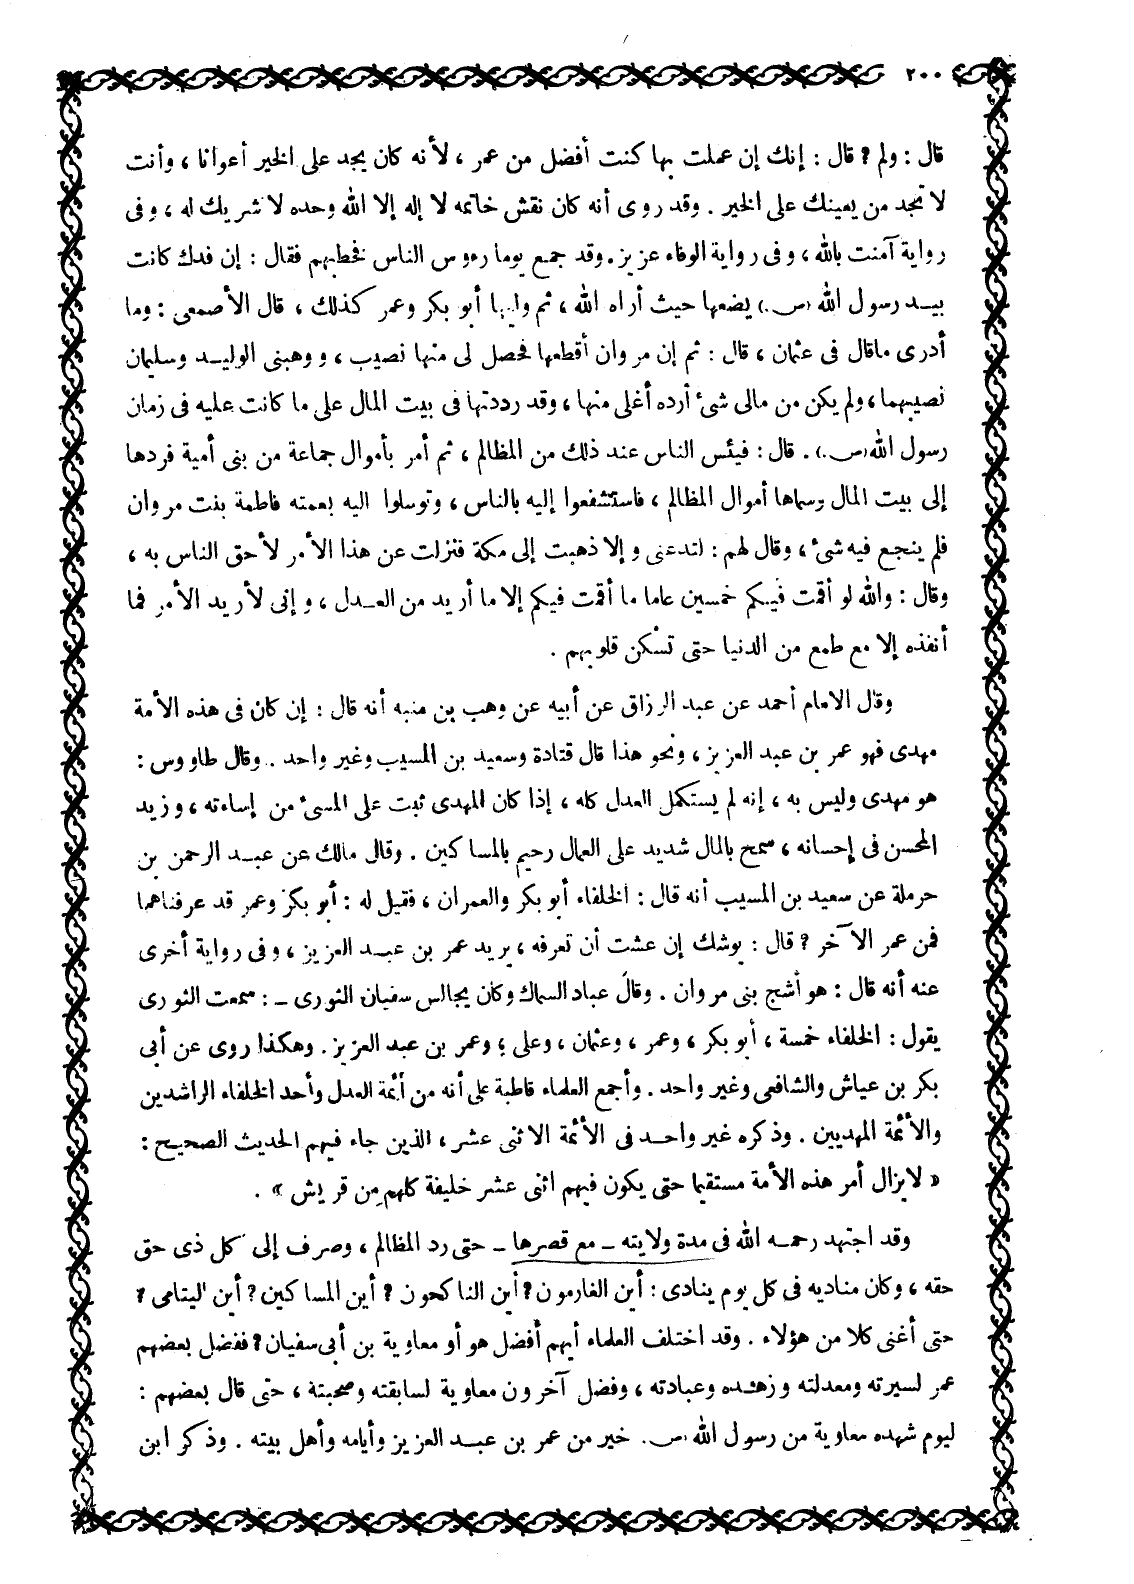 ٢٠٠
قال : ولم ? قال : إنك إن عملت بها كنت أفضل من عمر ، لأنه كان يجد على الخير أعوانا ، وأنت
لا تجد من يعينك على الخير . وقد روى أنه كان نقش خاتمه لا إله إلا الله وحده لا شريك له ، وفى
رواية آمنت بالله ، وفى رواية الوفاء عزيز . وقد جمع يوما رءوس الناس فخطبهم فقال : إن فدك كانت
بيد رسول الله (ص.) يضعها حيث أراه الله ، ثم وليها أبو بكر وعمر كذلك ، قال الأصمعى : وما
أدرى ماقال فى عثمان ، قال : ثم إن مروان أقطعها فحصل لى منها نصيب ، ووهبنى الوليد وسليمان
نصيبهما ، ولم يكن من مالى شئ أرده أغلى منها ، وقد رددتها فى بيت المال على ما كانت عليه فى زمان
رسول الله (ص.) . قال : فيئس الناس عند ذلك من المظالم ، ثم أمر بأموال جماعة من بنى أمية فردها
إلى بيت المال وسماها أموال المظالم ، فاستشفعوا إليه بالناس ، وتوسلوا اليه بعمته فاطمة بنت مروان
فلم ينجع فيه شئ ، وقال لهم : لتدعنى و إلا ذهبت إلى مكة فنزلت عن هذا الأمر لأحق الناس به ،
وقال : والله لو أقمت فيكم خمسين عاما ما أقمت فيكم إلا ما أريد من العدل ، و إنى لأريد الأمر فما
أنفذه إلا مع طمع من الدنيا حتى تسكن قلوبهم .
وقال الامام أحمد عن عبد الرزاق عن أبيه عن وهب بن منبه أنه قال : إن كان فى هذه الأمة
مهدى فهو عمر بن عبد العزيز ، ونحو هذا قال قتادة وسعيد بن المسيب وغير واحد . وقال طاووس :
هو مهدى وليس به ، إنه لم يستكمل العدل كله ، إذا كان المهدى ثبت على المسئ من إساءته ، وزيد
المحسن فى إحسانه ، سمح بالمال شديد على العمال رحيم بالمساكين . وقال مالك عن عبد الرحمن بن
حرملة عن سعيد بن المسيب أنه قال : الخلفاء أبو بكر والعمران ، فقيل له : أبو بكر وعمر قد عرفناهما
فمن عمر الآخر ? قال : يوشك إن عشت أن تعرفه ، يريد عمر بن عبد العزيز ، وفى رواية أخرى
عنه أنه قال : هو أشج بنى مروان . وقال عباد السماك وكان يجالس سفيان الثورى ـ : سمعت الثورى
يقول : الخلفاء خمسة ، أبو بكر ، وعمر ، وعثمان ، وعلى ، وعمر بن عبد العزيز . وهكذا روى عن أبى
بكر بن عياش والشافعى وغير واحد . وأجمع العلماء قاطبة على أنه من أئمة العدل وأحد الخلفاء الراشدين
والأئمة المهديين . وذكره غير واحد فى الأئمة الاثنى عشر ، الذين جاء فيهم الحديث الصحيح :
« لا يزال أمر هذه الأمة مستقيما حتى يكون فيهم اثنى عشر خليفة كلهم من قريش » .
وقد اجتهد رحمه الله فى مدة ولايته ـ مع قصرها ـ حتى رد المظالم ، وصرف إلى كل ذى حق
حقه ، وكان مناديه فى كل يوم ينادى : أين الغارمون ? أين الناكحون ? أين المساكين ? أين اليتامى ?
حتى أغنى كلا من هؤلاء . وقد اختلف العلماء أيهم أفضل هو أو معاوية بن أبى سفيان ? ففضل بعضهم
عمر لسيرته ومعدلته وزهده وعبادته ، وفضل آخرون معاوية لسابقته وصحبته ، حتى قال بعضهم :
ليوم شهده معاوية من رسول الله (ص.) خير من عمر بن عبد العزيز وأيامه وأهل بيته . وذكر ابن